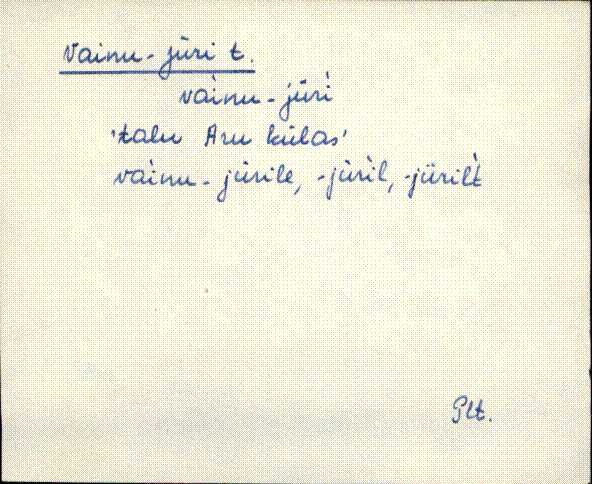 Vainu-jüri t.
vàinu-jürì
'talu Aru külas'
vàinu-jürile, -jürìl, -jürilt̀
Plt.